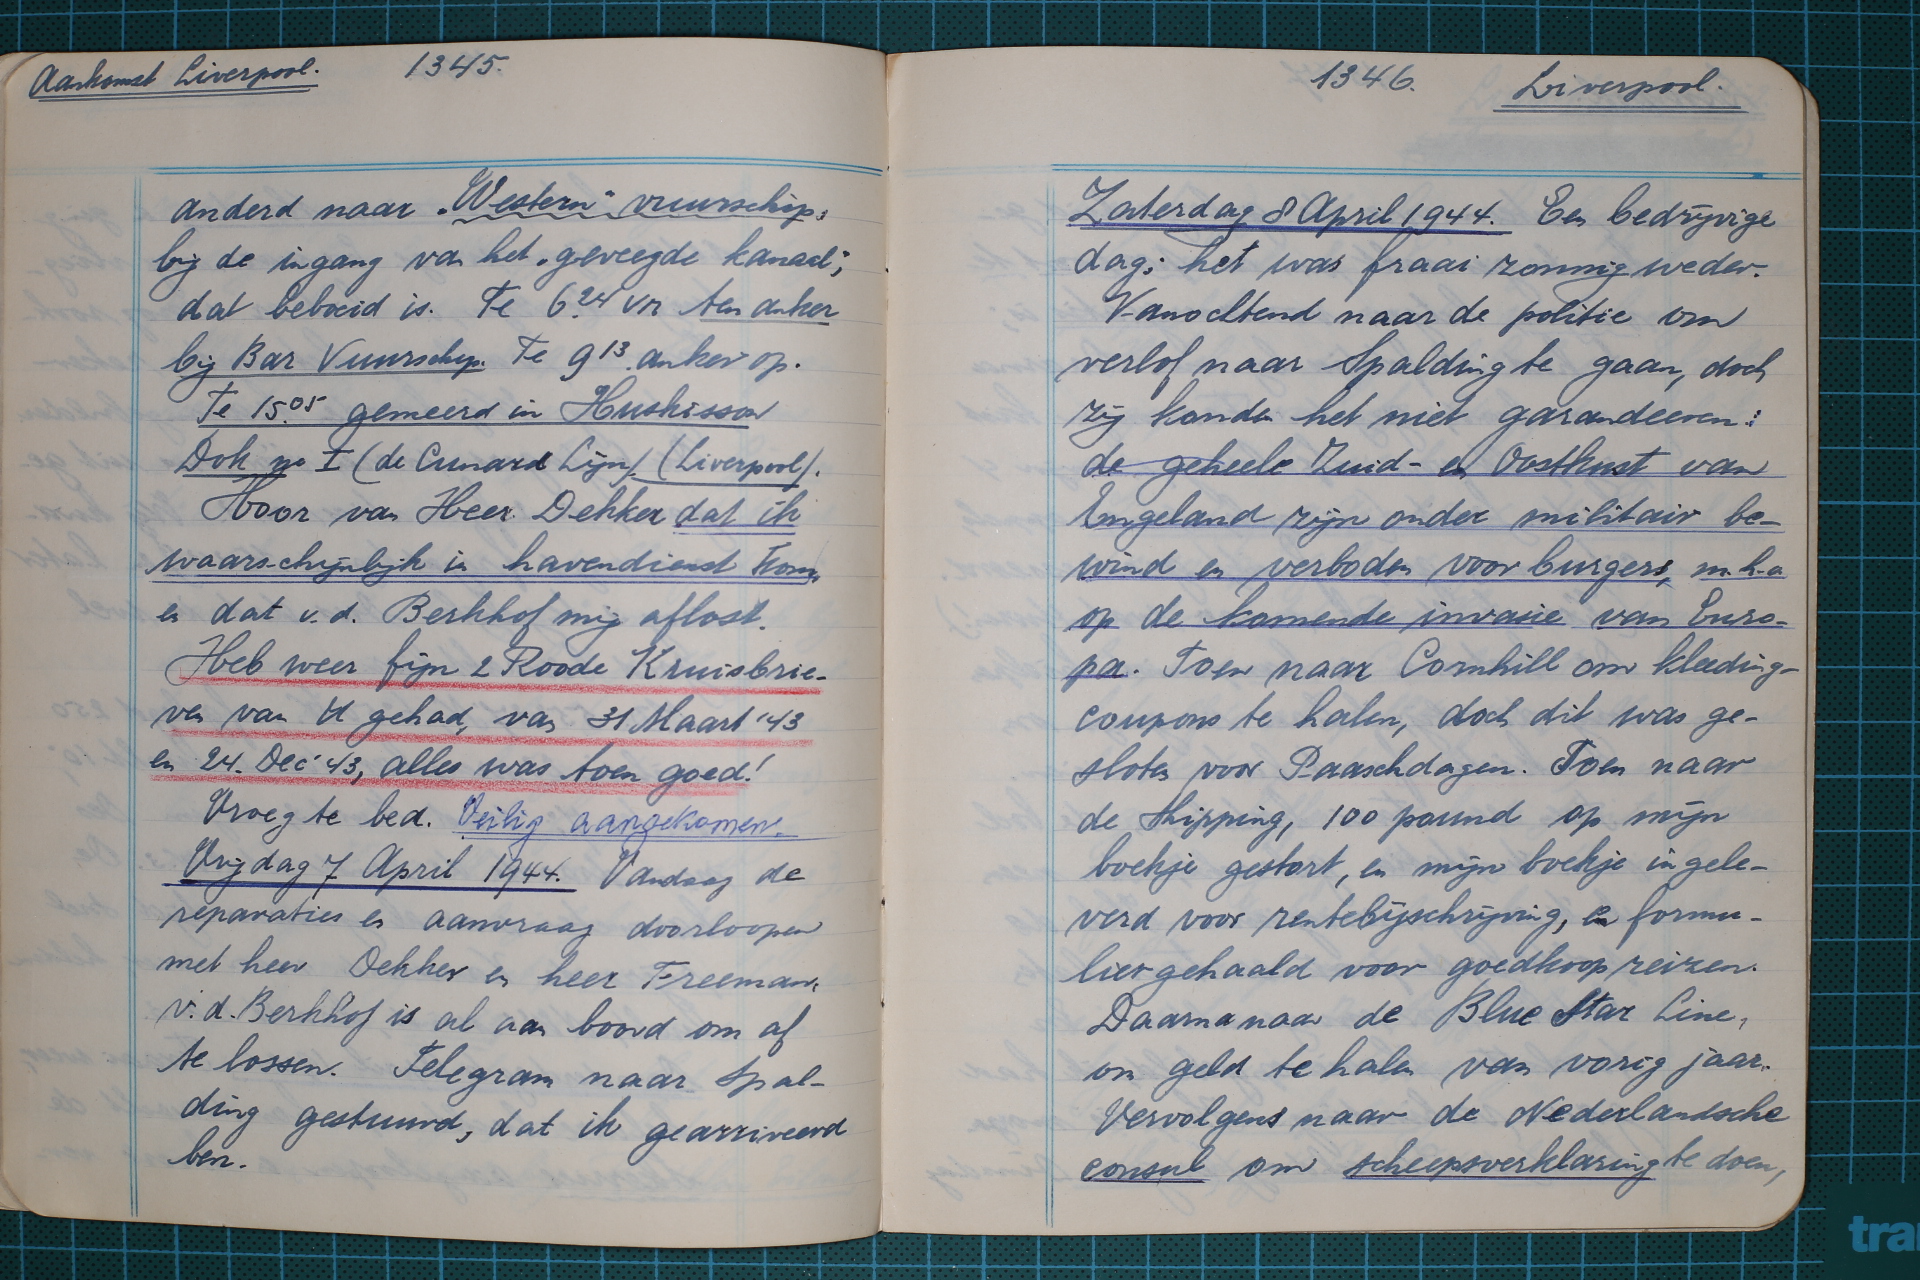 Aankomst Liverpool.
1345.
anderd naar "Western" vuurschip;
bij de ingang van het "geveegde kanaal",
dat beboeid is. Te 6.24 ur ten anker
bij Bar Vuurschip. Te 9 13 anker op.
Te 15.05 gemeerd in Huskisson
Dok no I (de Cunard Lijn) (Liverpool).
Hoor van Heer Dekker dat ik
waarschijnlijk in havendienst kom,
en dat v.d. Berkhof mij aflost.
Heb weer fijn 2 Roode Kruisbrie-
ven van gehad, van 31 Maart '43
en 24. Dec '43, alles was toen goed!
Vroeg te bed. Veilig aangekomen.
Vrijdag 7 April 1944. Vandaag de
reparaties en aanvraag doorloopen
met heer Dekker en heer Freeman.
v.d. Berkhof is al aan boord om af
te lossen. Telegram naar Spal-
ding gestuurd, dat ik gearriveerd
ben.
1346.
Liverpool.
Zaterdag 8 April 1944. Een bedrijvige
dag; het was fraai zonnig weder.
Vanochtend naar de politie om
verlof naar Spalding te gaan, doch
zij konden het niet garandeeren:
de geheele Zuid- en Oostkust van
Engeland zijn onder militair be-
wind en verboden voor burgers, m.h.o
op de komende invasie van Euro-
pa. Toen naar Cornhill om kleeding-
coupons te halen, doch dit was ge-
sloten voor Paaschdagen. Toen naar
de Shipping, 100 pound op mijn
boekje gestort, en mijn boekje ingele-
verd voor rentebijschrijving, en formu-
lier gehaald voor goedkoop reizen.
Daarna naar de Blue Star Line,
om geld te halen van vorig jaar.
Vervolgens naar de Nederlandsche
consul om scheepsverklaring te doen,
tra